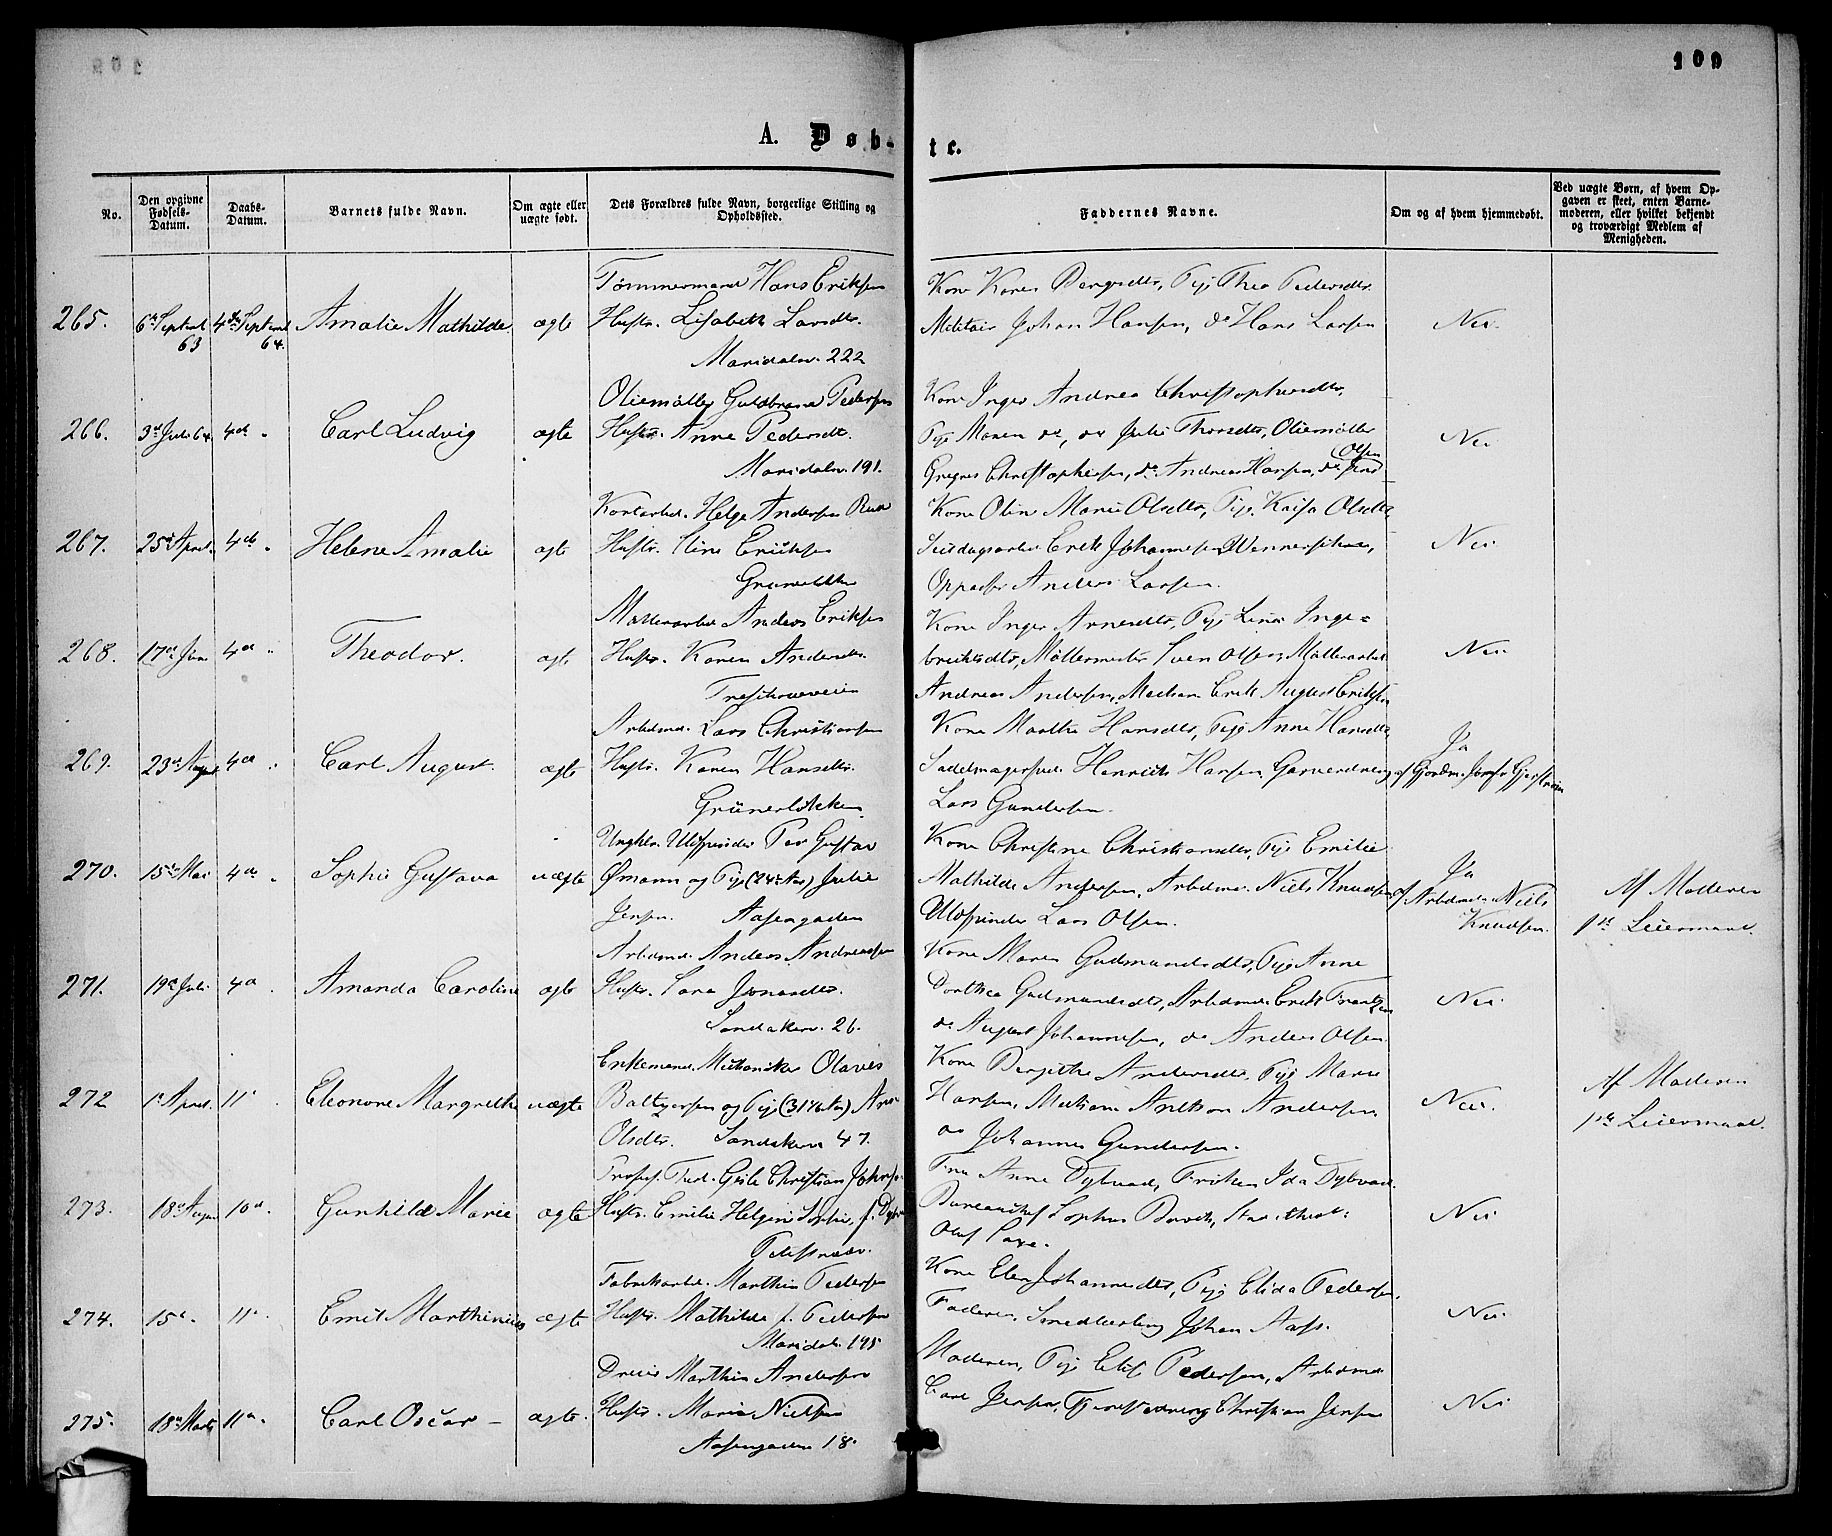 109
A. Døb-
te.
No.
Den opgivne Fødsels-Datum.
Daabs-Datum.
Barnets fulde Navn.
Om ægte eller uægte født.
Dets Forældres fulde Navn, borgerlige Stilling og Opholdssted.
Faddernes Navne.
Om og af hvem hjemmedøbt.
Ved uægte Børn, af hvem Opgaven er skeet, enten Barnemoderen, eller hvilket bekjendt og troværdigt Medlem af Menigheden.
Tømmermand Hans Eriksen
Kone Karen Bergsdtr, Pige Thea Pedersdtr
265. 6te Septembr 63 4de Septembr 64. Amalie Mathilde ægte Hustr. Lisabeth Larsdtr.
Militair Johan Hansen, do Hans Larsen Nei.
Maridalsv. 222
Oliemøller Guldbrand Pedersen
Kone Inger Andrea Christophersdtr,
266. 3d Juli 64 4de Carl Ludvig ægte Hustr. Anne Pedersdtr.
Pige Maren do, do Julie Thorsdtr, Oliemøller Nei
Maridalsv. 191.
Gregers Christophersen, do Andreas Hansen, do Olsen
Helge Andersen Ruud
Kone Olin Marie Olsdtr, Pige Kaisa Olsdtr,
267. 25d April 4de Helene Amalie ægte Hustr. Eriksen
Erik Johannesen, Nei
Oppasser Anders Larsen.
Møllerarbd Anders Eriksen
Kone Inger Arnesdtr, Pige Lina Inge-
268. 17de Juni 4de Theodor. ægte Hustr. Karen Andersdtr.
brektsdtr, Møllermester Sven Olsen, Møllerarbd Nei
Andreas Andersen, Mechan. Erik August Eriksen
Arbdmd. Lars Christiansen
Kone Marthe Hansdtr, Pige Anne Hansdtr,
269. 23de August 4de Carl August. ægte Hustr. Karen Hansdtr.
Sadelmagersvd. Henrich Hansen, Garverdreng Ja
Grünerløkken
Lars Gundersen.
Ungkr. Uldspinder Per Gustav
Kone Christine Christiansdtr, Pige Emilie
270. 15de Mai 4de Sophie Gustava uægte Ømann og Pige (24 Aar) Julie
Mathilde Andersen, Arbdmd. Niels Knudsen Ja
af Arbdmd. Niels Knudsen.
Af Moderen
1ste Leiermaal.
Jensen. Aasengaden
Uldspinder Lars Olsen.
Arbdmd. Anders Andreassen
Kone Maren Gudmundsdtr, Pige Anne
271. 19de Juli 4de Amanda Caroline ægte Hustr. Sara Jonasdtr.
Dorthea Gudmundsdtr, Arbdmd. Erik Frantzen Nei
Sandakerv. 26.
do August Johannesen, do Anders Olsen
Enkemand, Mechaniker Olaves
Kone Bergithe Andersdtr. Pige Marie
272 1e April. 11e Eleonore Margrethe uægte Baltzersen og Pige (31 Aar) Ane
Hansen, Mechan. Anthon Andersen Nei.
Af Moderen
1ste Leiermaal.
Olsdtr. Sandakerv 47.
og Johannes Gundersen.
Profes. Theol. Gisle Christian Johnson
Fru Anne Dybwad, Frøken Ida Dybwad
273. 18de August 10de Gunhild Marie ægte Hustr. Emilie Helgine Sophie, f. Dybwad
Bureauchef Sophus Nei
Olaf Saxe.
Fabrikarbd. Marthin Pedersen
Kone Elen Johannesdtr, Pige Elida Pedersen,
274. 15de. 11e Emil Marthinius ægte Hustr. Mathilde f. Pedersen
Faderen, Smedlærling Johan Aas. Nei.
Maridalsv. 195
Dreier Marthin Andersen
Moderen, Pige Elise Pedersen, Arbdmd
275. 18de Marts 11e Carl Oscar – ægte. Hustr. Maria Nielsen
Carl Jensen, Christian Jensen Nei
Aasengaden 18.